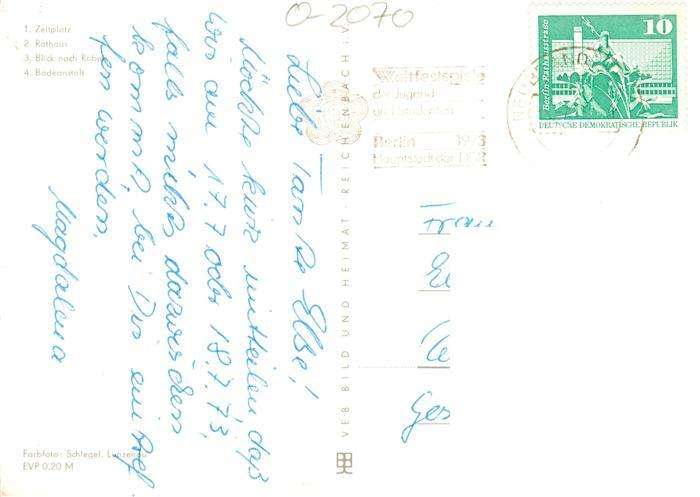 O-2070
1. Zeltplatz
2. Rathaus
3. Blick nach Röbel
4. Badeanstalt
Liebe Tante Else!
Möchte kurz mitteilen, daß
wir am 17.7 oder 18.7.73,
falls nichts dazwischen
kommt, bei Dir eintref
fen werden.
Magdalena
Farbfoto: Schlegel, Lunzenau
EVP 0,20 M
VEB BILD UND HEIMAT · REICHENBACH i. V.
Weltfestspiele
der Jugend
und Studenten
Berlin 1973
Hauptstadt der DDR
10
Berlin-Rathausstrasse
DEUTSCHE DEMOKRATISCHE REPUBLIK
Frau